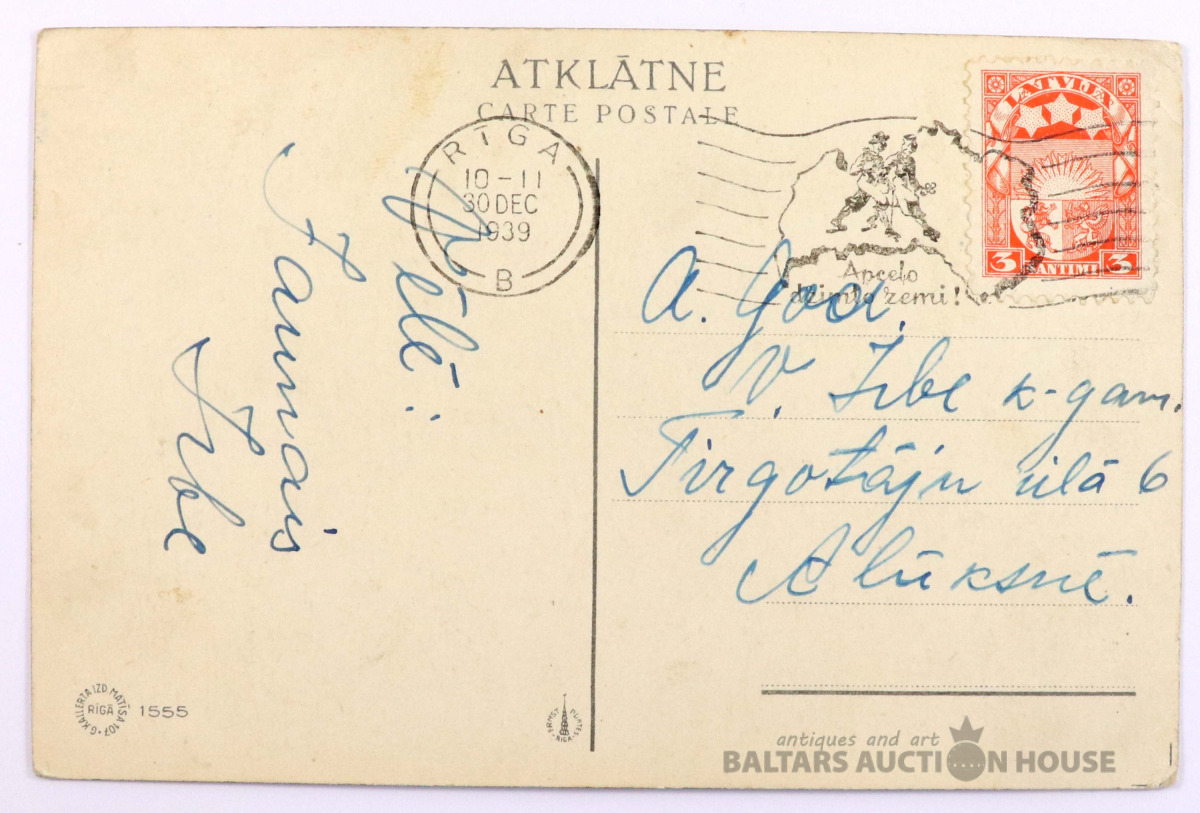 ATKLĀTNE
CARTE POSTALE
RĪGA
10-11
30 DEC
1939
B
Apceļo
dzimto zemi!
LATVIJA
3 SANTIMI 3
Vēlē:
Jaunais
Irbe
A. God.
V. Irbe k-gam.
Tirgotāju ielā 6
Alūksnē.
G. KALLERTA IZD. MATĪSA 107
RĪGĀ
1555
ERNST PLATES·RIGA
antiques and art
BALTARS AUCTION HOUSE